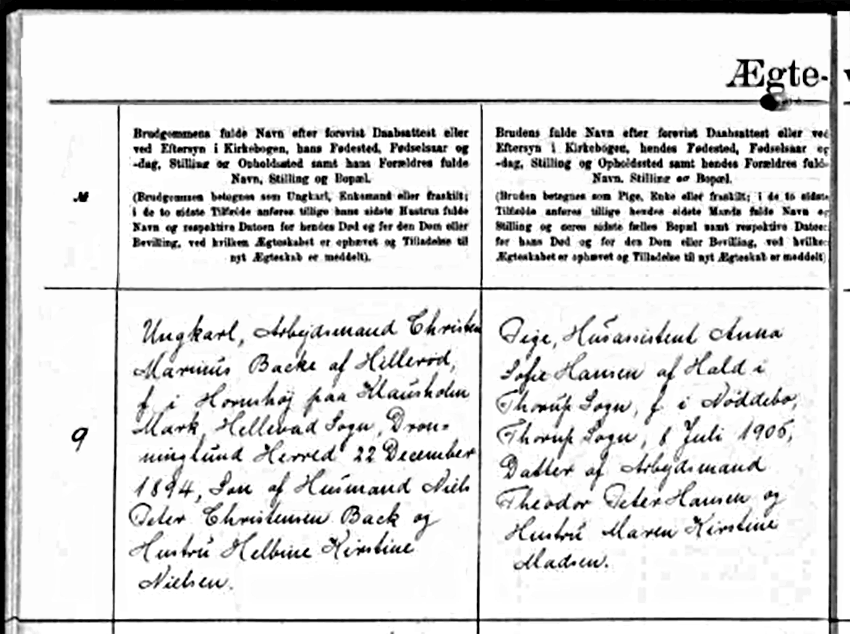 Ægte-
№
Brudgommens fulde Navn efter forevist Daabsattest eller
ved Eftersyn i Kirkebogen, hans Fødested, Fødselsaar og
-dag, Stilling og Opholdssted samt hans Forældres fulde
Navn, Stilling og Bopæl.
(Brudgommen betegnes som Ungkarl, Enkemand eller fraskilt;
i de to sidste Tilfælde anføres tillige hans sidste Hustrus fulde
Navn og respektive Datoen for hendes Død og for den Dom eller
Bevilling, ved hvilken Ægteskabet er ophævet og Tilladelse til
nyt Ægteskab er meddelt).
Brudens fulde Navn efter forevist Daabsattest eller ved
Eftersyn i Kirkebogen, hendes Fødested, Fødselsaar og
-dag, Stilling og Opholdssted samt hendes Forældres fulde
Navn, Stilling og Bopæl.
(Bruden betegnes som Pige, Enke eller fraskilt; i de to sidste
Tilfælde anføres tillige hendes sidste Mands fulde Navn og
Stilling og deres sidste fælles Bopæl samt respektive Datoen
for hans Død og for den Dom eller Bevilling, ved hvilken
Ægteskabet er ophævet og Tilladelse til nyt Ægteskab er meddelt)
9
Ungkarl, Arbejdsmand Christen
Marinus Backe af Hillerød,
f. i Hornhøj paa Klausholm
Mark, Hellevad Sogn, Dron-
ninglund Herred 22 December
1894, Søn af Husmand Niels
Peter Christensen Back og
Hustru Helbine Kirstine
Nielsen.
Pige, Husassistent Anna
Sofie Hansen af Hald i
Thorup Sogn, f. i Nøddebo,
Thorup Sogn, 8 Juli 1906,
Datter af Arbejdsmand
Theodor Peter Hansen og
Hustru Maren Kirstine
Madsen.